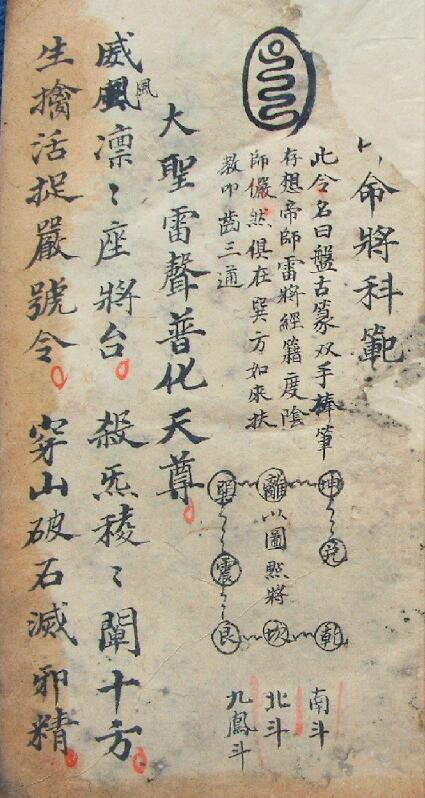 命將科範
此令名曰盤古篆双手棒筆
存想帝師雷將經籍度陰
師儼然俱在巽方如來扶
教叩齒三通
坤 兌 乾
離 以圖㸃將 坎
巽 震 艮
南斗
北斗
九鳳斗
大聖雷聲普化天尊
威風凛〻座將台 殺炁稜〻闡十方
風
生擒活捉嚴號令 穿山破石滅邪精